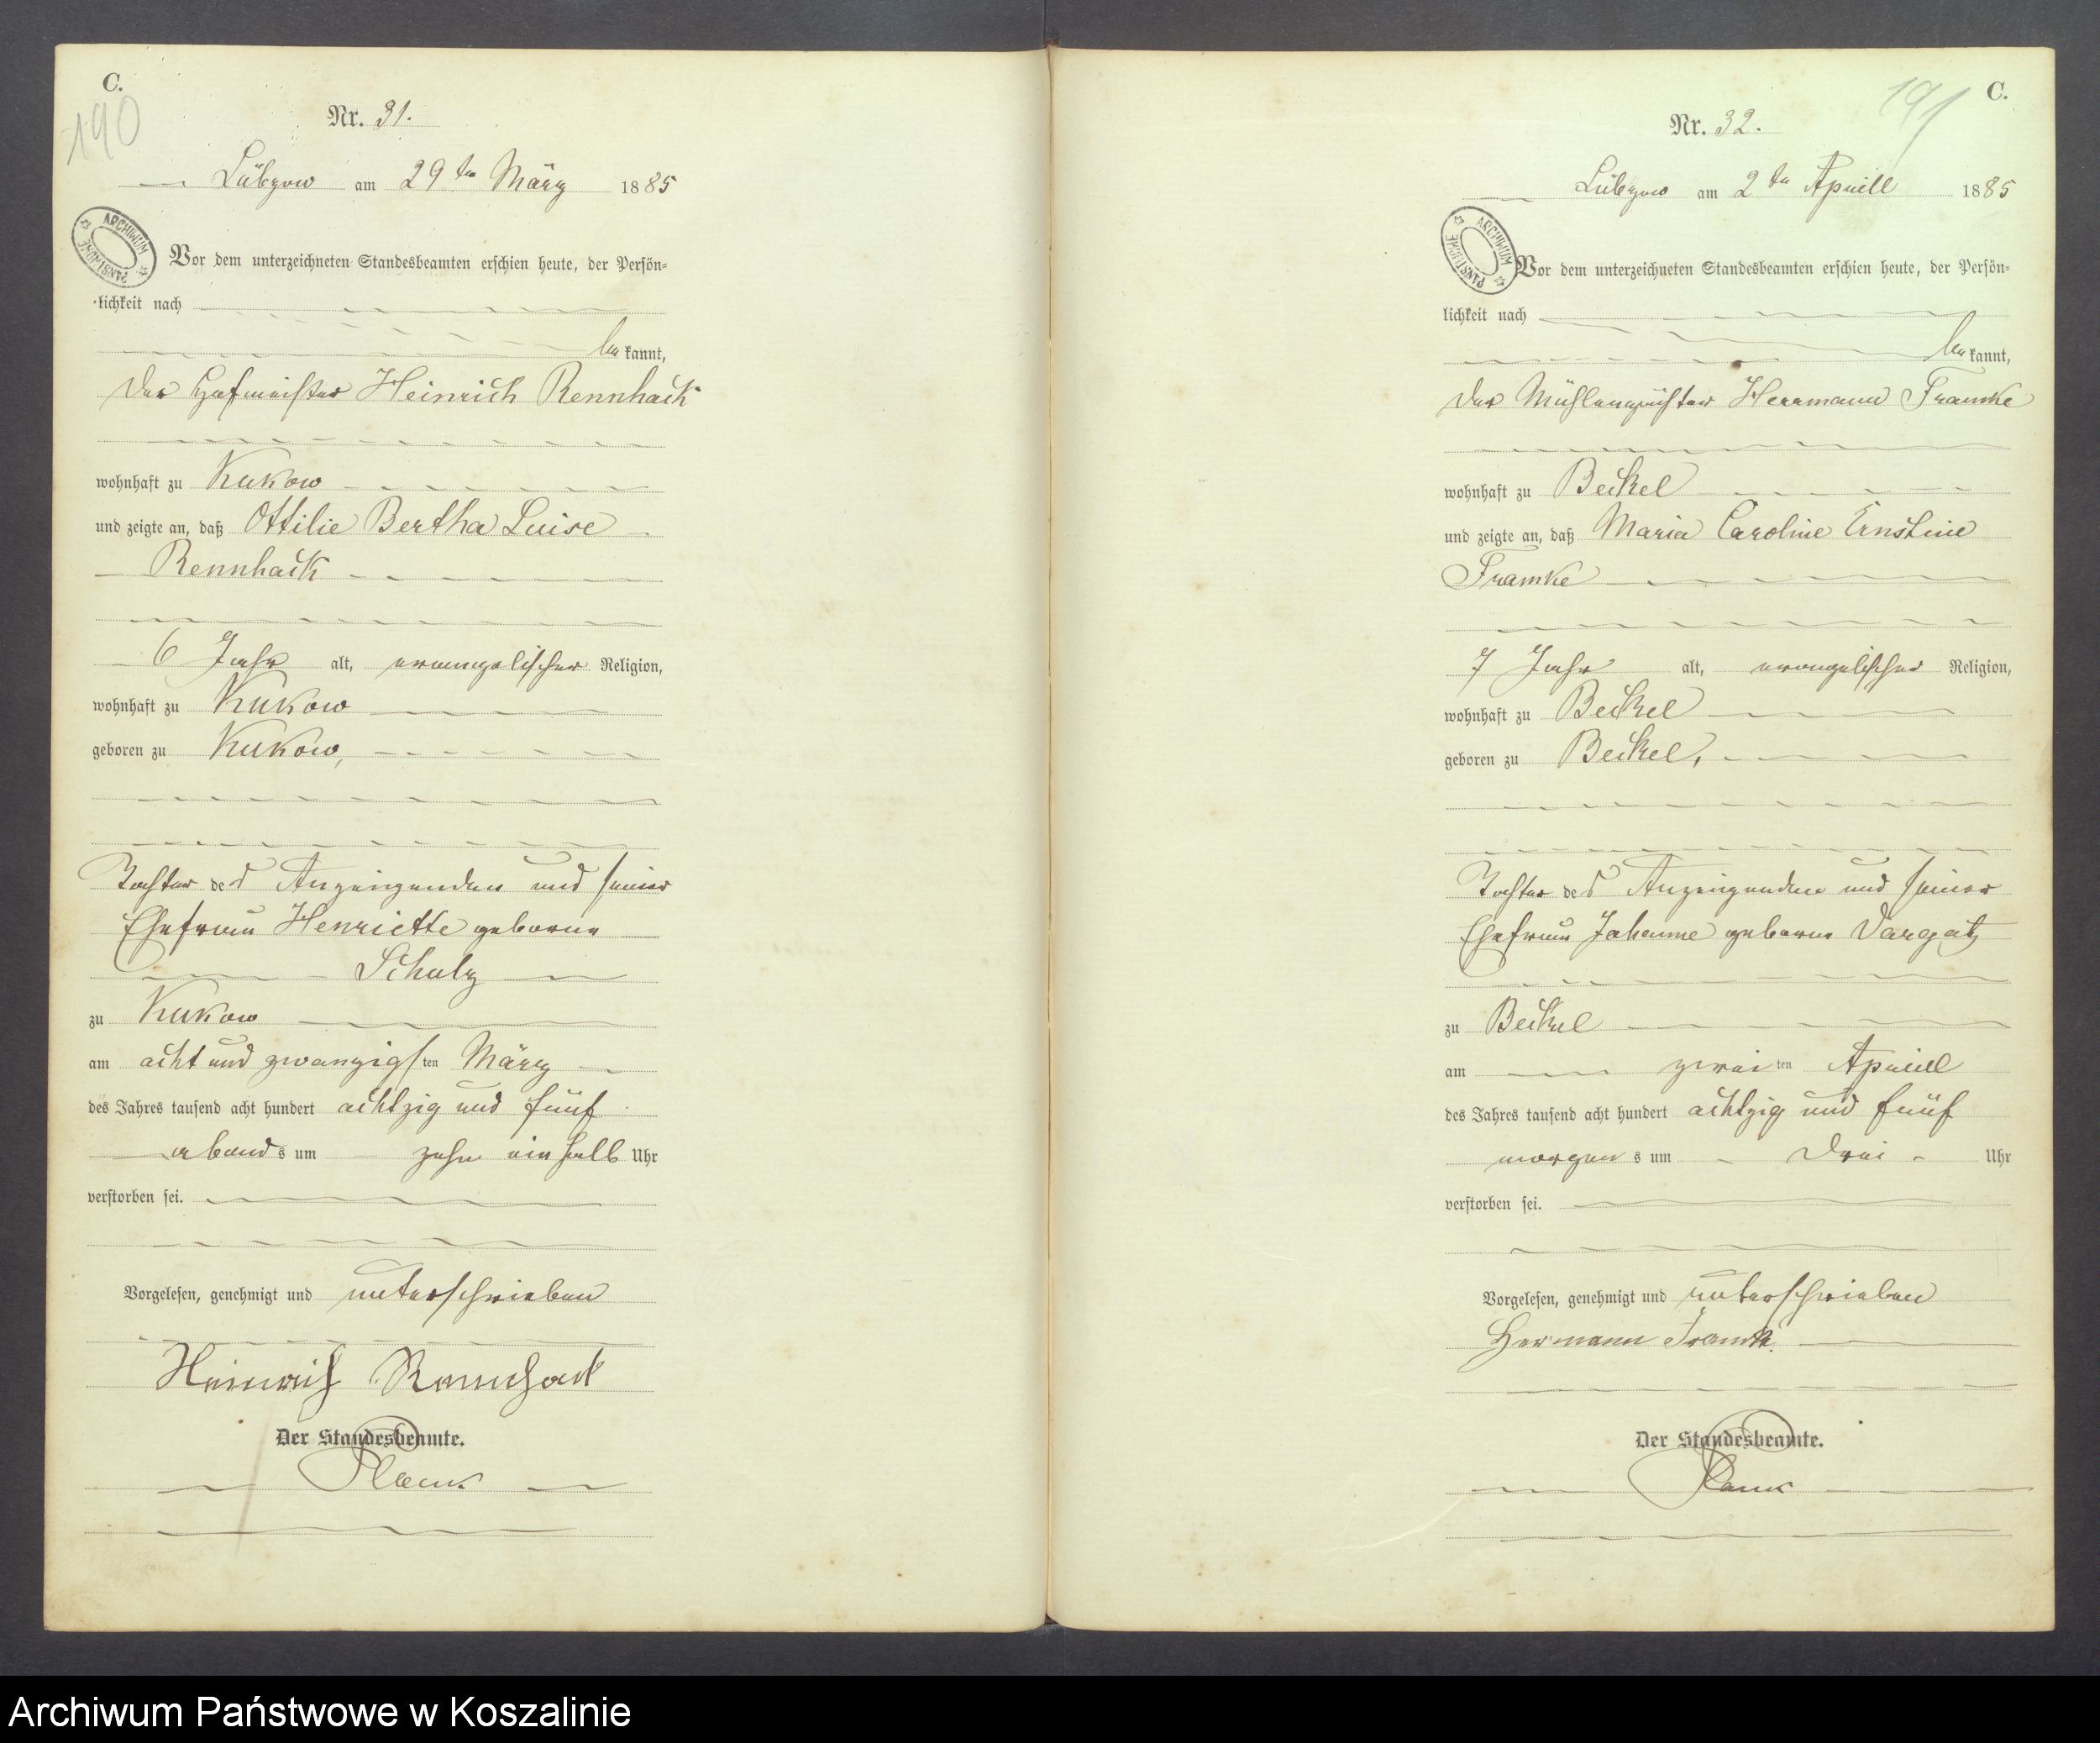 C.
190
Nr. 31.
Lübzow am 29ten März 1885
ARCHIWUM PAŃSTWOWE
Vor dem unterzeichneten Standesbeamten erschien heute, der Persön-
lichkeit nach
bekannt,
der Hofmeister Heinrich Rennhack
wohnhaft zu Kukow
und zeigte an, daß Ottilie Bertha Luise
Rennhack
6 Jahr alt, evangelischer Religion,
wohnhaft zu Kukow
geboren zu Kukow,
Tochter des Anzeigenden und seiner
Ehefrau Henriette geborne
Schulz
zu Kukow
am acht und zwanzigsten März
des Jahres tausend acht hundert achtzig und fünf
abends um zehn ein halb Uhr
verstorben sei.
Vorgelesen, genehmigt und unterschrieben
Heinrich Rennhack
Der Standesbeamte.
C.
191
Nr. 32.
Lübzow am 2ten Aprill 1885
ARCHIWUM PAŃSTWOWE
Vor dem unterzeichneten Standesbeamten erschien heute, der Persön-
lichkeit nach
bekannt,
der Mühlenmeister Herrmann Framke
wohnhaft zu Beckel
und zeigte an, daß Maria Caroline Ernstine
Framke
7 Jahr alt, evangelischer Religion,
wohnhaft zu Beckel
geboren zu Beckel,
Tochter des Anzeigenden und seiner
Ehefrau Johanne geborne Vargatz
zu Beckel
am zweiten Aprill
des Jahres tausend acht hundert achtzig und fünf
morgens um drei Uhr
verstorben sei.
Vorgelesen, genehmigt und unterschrieben
Hermann Framke.
Der Standesbeamte.
Archiwum Państwowe w Koszalinie